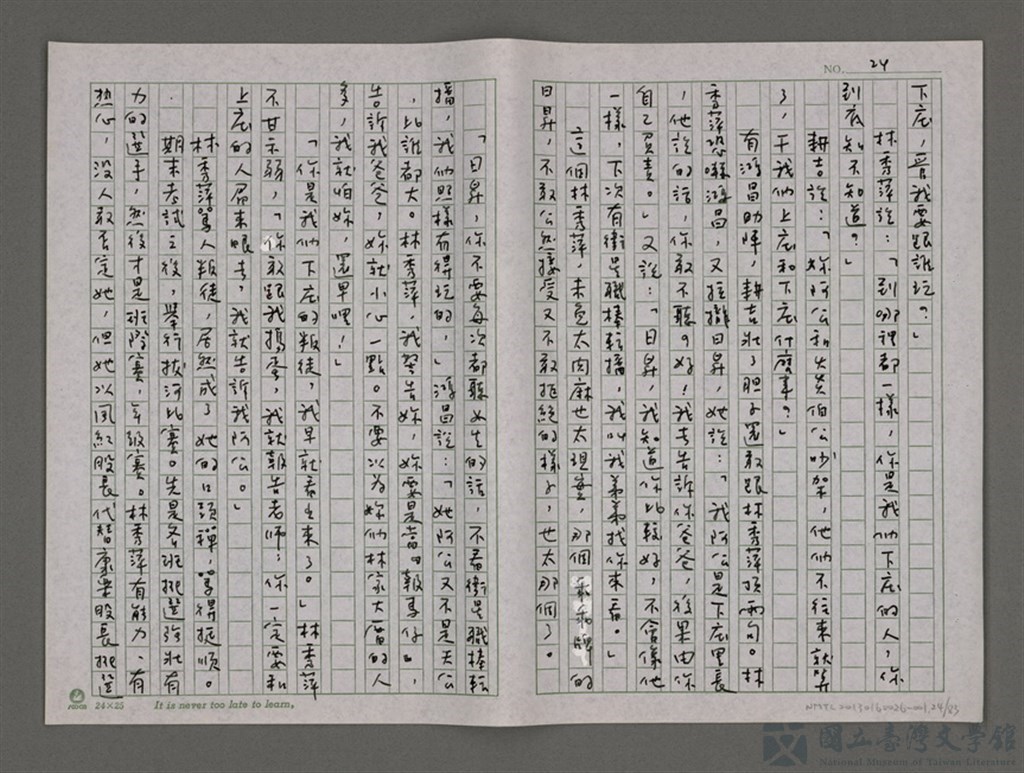 NO. 24
下庄，管我要跟誰玩？」
　　林秀萍說：「到哪裡都一樣，你是我們下庄的人，你
到底知不知道？」
　　耕吉說：「妳阿公和火炎伯公吵架，他們不往來就算
了，干我們上庄和下庄什麼事？」
　　有鴻昌助陣，耕吉壯了胆子還敢跟林秀萍頂兩句。林
秀萍恐嚇鴻昌，又拉攏日昇，她說：「我阿公是下庄里長
，他說的話，你敢不聽？好！我去告訴你爸爸，後果由你
自己負責。」又說：「日昇，我知道你比較好，不會像他
一樣，下次有衛星職棒轉播，我叫我弟弟找你來看。」
　　這個林秀萍，未免太肉麻也太現實，那個乖乖牌的
日昇，不敢公然接受又不敢拒絕的樣子，也太那個了。
　　「日昇，你不要每次都聽女生的話，不看衛星職棒轉
播，我們照樣有得玩的。」鴻昌說：「她阿公又不是天公
，比誰都大。林秀萍，我警告妳，妳要是當『報馬仔』，
告訴我爸爸，妳就小心一點。不要以為妳們林家大厝的人
多，我就怕妳，還早哩！」
　　「你是我們下庄的叛徒，我早就看出來了。」林秀萍
不甘示弱，「你敢跟我搗蛋，我就報告老師；你一定要和
上庄的人屌來眼去，我就告訴我阿公。」
　　林秀萍罵人叛徒，居然成了她的口頭禪，罵得挺順。
　　期末考試之後，舉行拔河比賽。先是各班挑選強壯有
力的選手，然後才是班際賽、年級賽。林秀萍有能力、有
熱心，沒人敢否定她，但她以風紀股長代替康樂股長挑選
24×25
It is never too late to learn,
NMTL20130160026-001,24/83
國立臺灣文學館
National Museum of Taiwan Literature